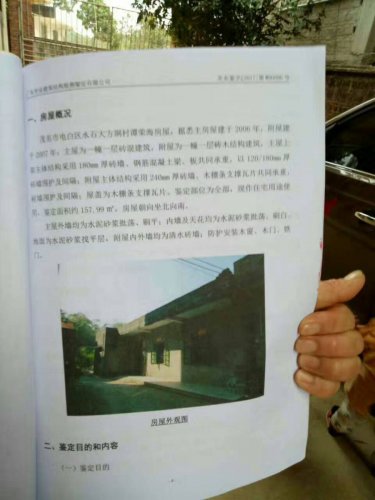 广东中正建筑结构检测鉴定有限公司
一、房屋概况
茂名市电白区水石大方铜村谭荣海房屋，据悉主房屋建于2006年，附屋建
于2007年；主屋为一幢一层砖混建筑，附屋为一幢一层砖木结构建筑。主屋上
部主体结构采用180mm厚砖墙、钢筋混凝土梁、板共同承重，以120/180mm厚
砖墙围护及间隔；附屋主体结构采用240mm厚砖墙、木檩条支撑瓦片共同承重；
砖墙围护及间隔；屋盖为木檩条支撑瓦片。鉴定部位为全部，现作住宅用途使
用，鉴定面积约157.99㎡，房屋朝向坐北向南。
主屋外墙均为水泥砂浆批荡、刷平；内墙及天花均为水泥砂浆批荡、刷白；
地面为水泥砂浆找平层，附屋内外墙均为清水砖墙；防护安装木窗、木门、铁
门。
房屋外观图
二、鉴定目的和内容
（一）鉴定目的